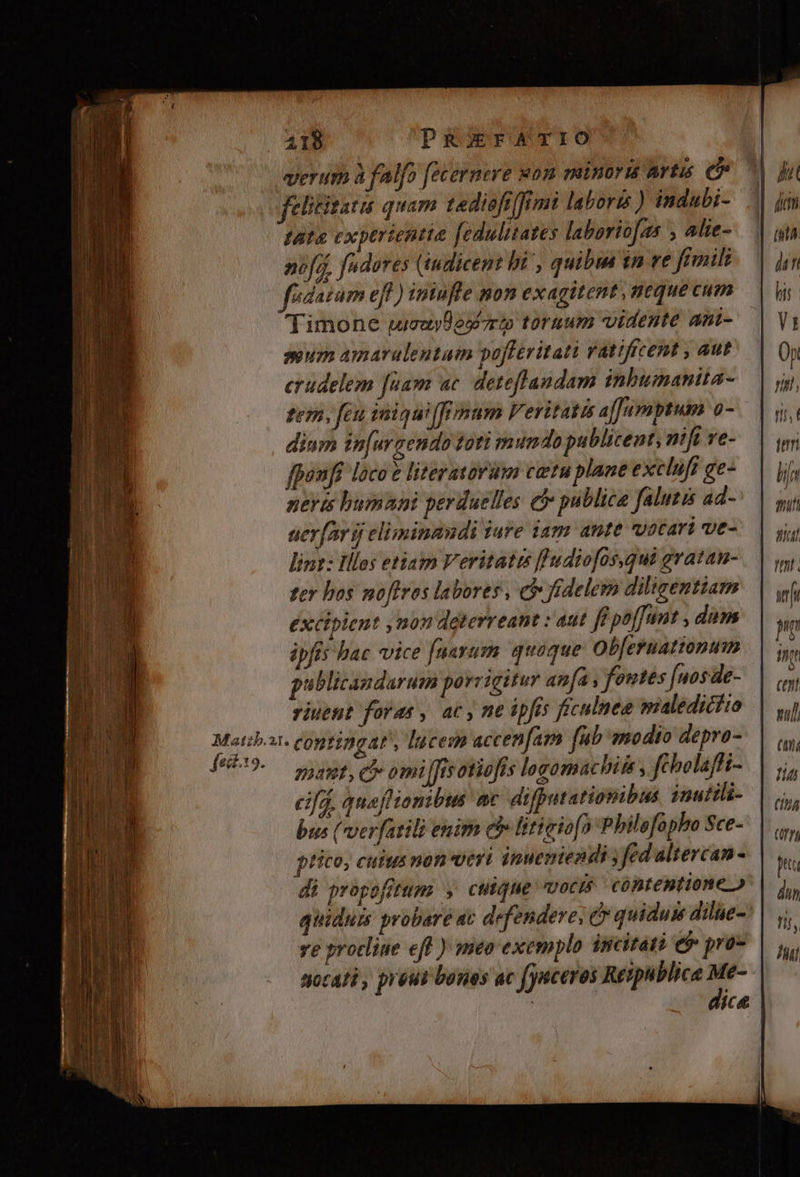 218 PRÆFATIO
verum à falso secernere non minoris artis &
felicitatis quam tædiosissimi laboris) indubi-
tatæ experientiæ sedulitates laboriosas, alie-
nosq́, sudores (iudicent hi, quibus in re simili
sudatum est) iniuste non exagitent, neque cum
Timone toruum vidente ani-
mum amarulentum posteritati ratificent, aut
crudelem suam ac detestandam inhumanita-
tem, seu iniquissimum Veritatis assumptum o-
dium insurgendo toti mundo publicent, nisi re-
sponsi loco è literatorum cœtu plane exclusi ge-
neris humani perduelles & publicæ salutis ad-
uersarij eliminandi iure iam ante vocari ve-
lint: Illos etiam Veritatis studiosos, qui gratan-
ter hos nostros labores, & fidelem diligentiam
excipient, non deterreant: aut si possunt, dum
ipsis hac vice suarum quoque Obseruationum
publicandarum porrigitur ansa, fontes suos de-
riuent foras, ac, ne ipsis ficulneæ maledictio
Matth. 21. contingat, lucem accensam sub modio depro-
sect. 19. mant, & omissis otiosis logomachiis, scholasti-
cisq́, quæstionibus ac disputationibus inutili-
bus (versatili enim & litigioso Philosopho Sce-
ptico, cuius non veri inueniendi, sed altercan-
di propositum, cuique vocis contentione
quiduis probare ac defendere, & quiduis dilue-
re procliue est) meo exemplo incitati & pro-
uocati, prout bonos ac synceros Reipublicæ Me-
dicæ